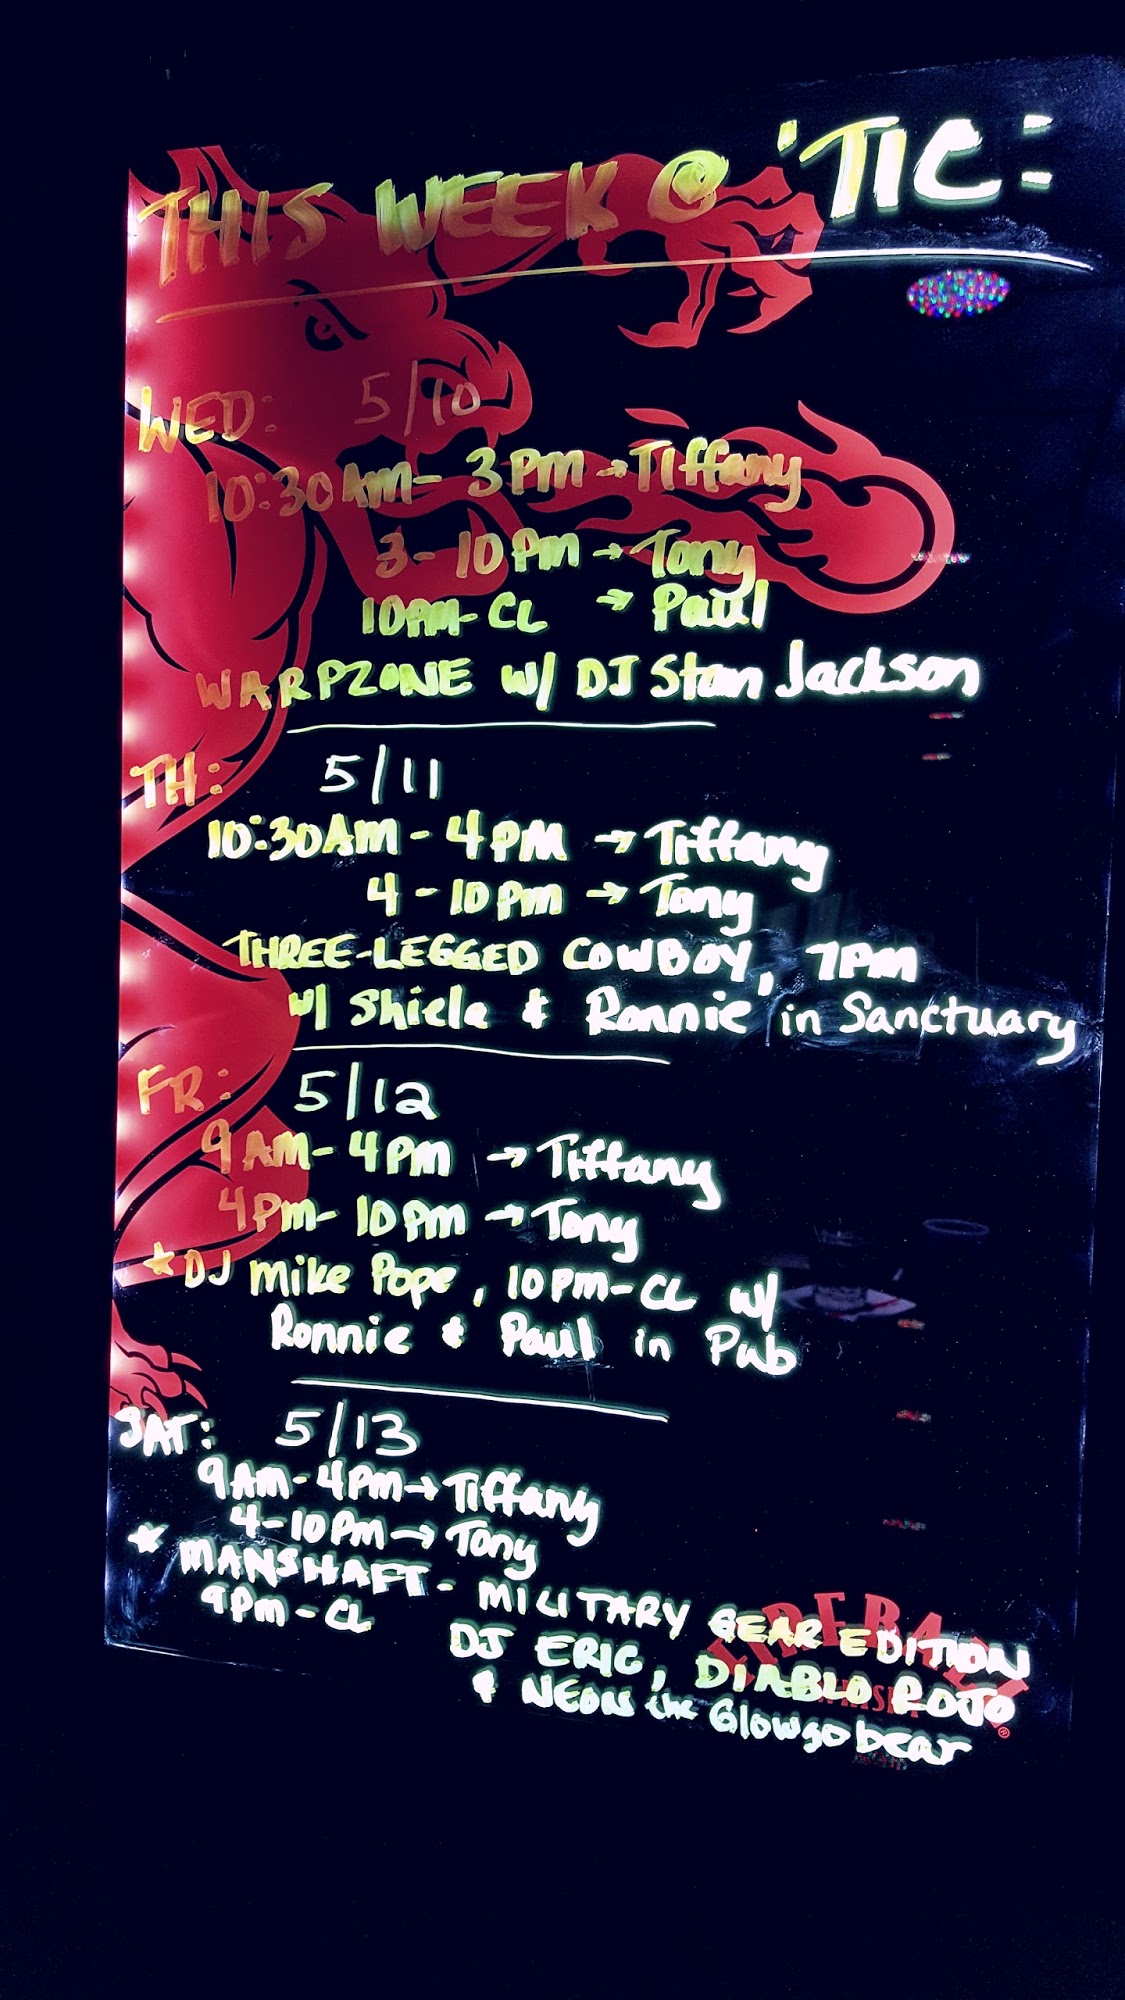 THIS WEEK @ 'TIC:
WED: 5/10
10:30AM - 3PM → Tiffany
3 - 10PM → Tony
10PM - CL → Paul
WARPZONE w/ DJ Stan Jackson
TH: 5/11
10:30AM - 4PM → Tiffany
4 - 10PM → Tony
THREE-LEGGED COWBOY, 7PM
w/ Shiela & Ronnie in Sanctuary
FR: 5/12
9AM - 4PM → Tiffany
4PM - 10PM → Tony
* DJ Mike Pope, 10PM - CL w/
Ronnie & Paul in Pub
SAT: 5/13
9AM - 4PM → Tiffany
4 - 10PM → Tony
* MANSHAFT - MILITARY GEAR EDITION
9PM - CL DJ ERIC, DIABLO ROJO
& NEON the Glowgobear
FIREBALL
®